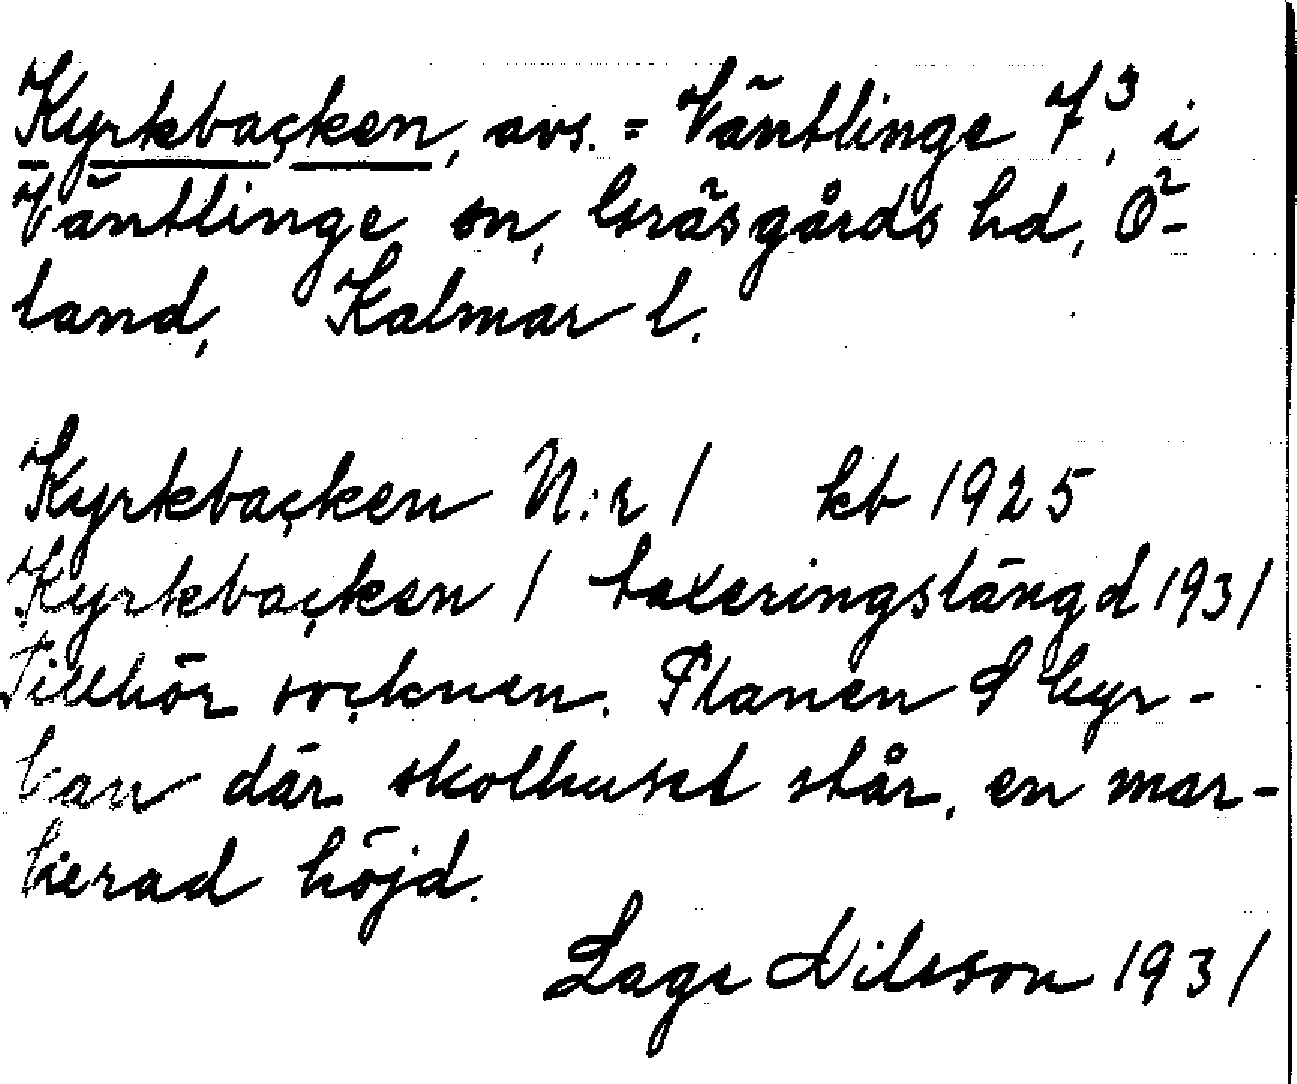 Kyrkbacken, avs. = Väntlinge 7³, i
Väntlinge sn, Gräsgårds hd, Ö-
land, Kalmar l.
Kyrkbacken N:r 1 kb 1925
Kyrkbacken 1 taxeringslängd 1931
Tillhör socknen. Planen S kyr-
kan där skolhuset står, en mar-
kerad höjd.
Lage Nilsson 1931